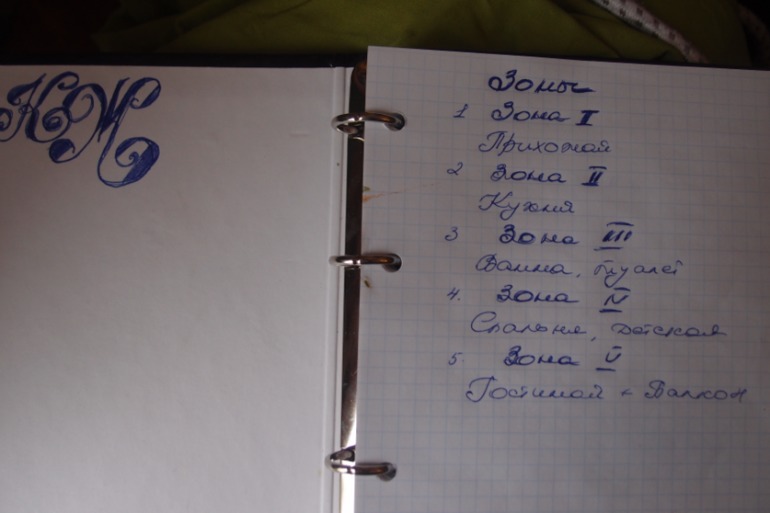 КЖ
Зоны
1 Зона I
Прихожая
2 Зона II
Кухня
3 Зона III
Ванна, туалет
4. Зона IV
Спальня, детская
5. Зона V
Гостиной + Балкон